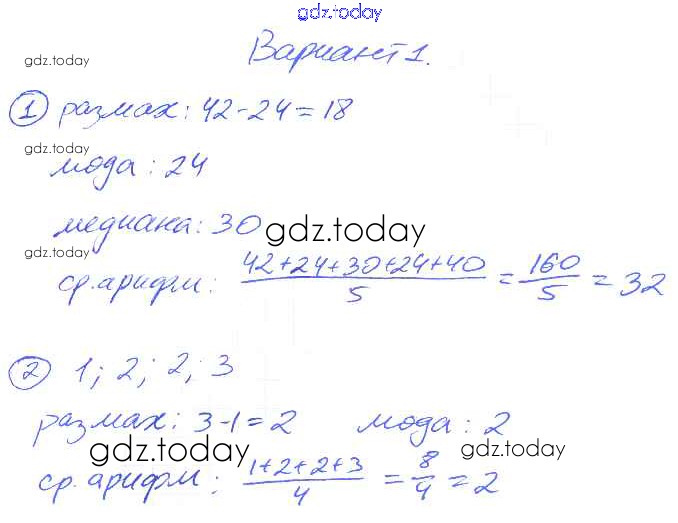 gdz.today
Вариант 1.
gdz.today
① размах: 42-24=18
gdz.today
мода: 24
медиана: 30
gdz.today
gdz.today
ср. арифм: (42+24+30+24+40)/5 = 160/5 = 32
② 1; 2; 2; 3
размах: 3-1=2 мода: 2
gdz.today gdz.today
ср. арифм: (1+2+2+3)/4 = 8/4 = 2